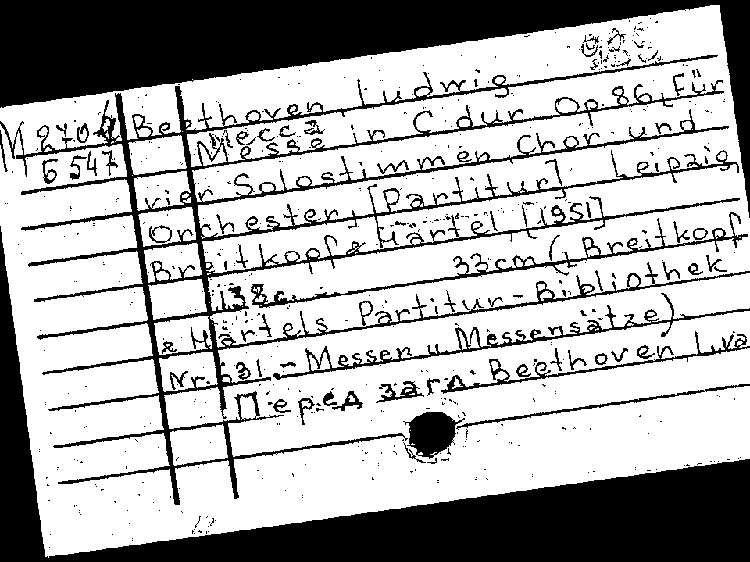 985
М 2704 Beethoven, Ludwig
Б 547 Месса
Messe in C dur Op. 86. Für
vier Solostimmen, Chor und
Orchester. [Partitur] Leipzig,
Breitkopf & Härtel, [1951]
138 c. - 33 cm (Breitkopf
& Härtels Partitur-Bibliothek
Nr. 631. - Messen u. Messensätze).
Перед загл: Beethoven L. va